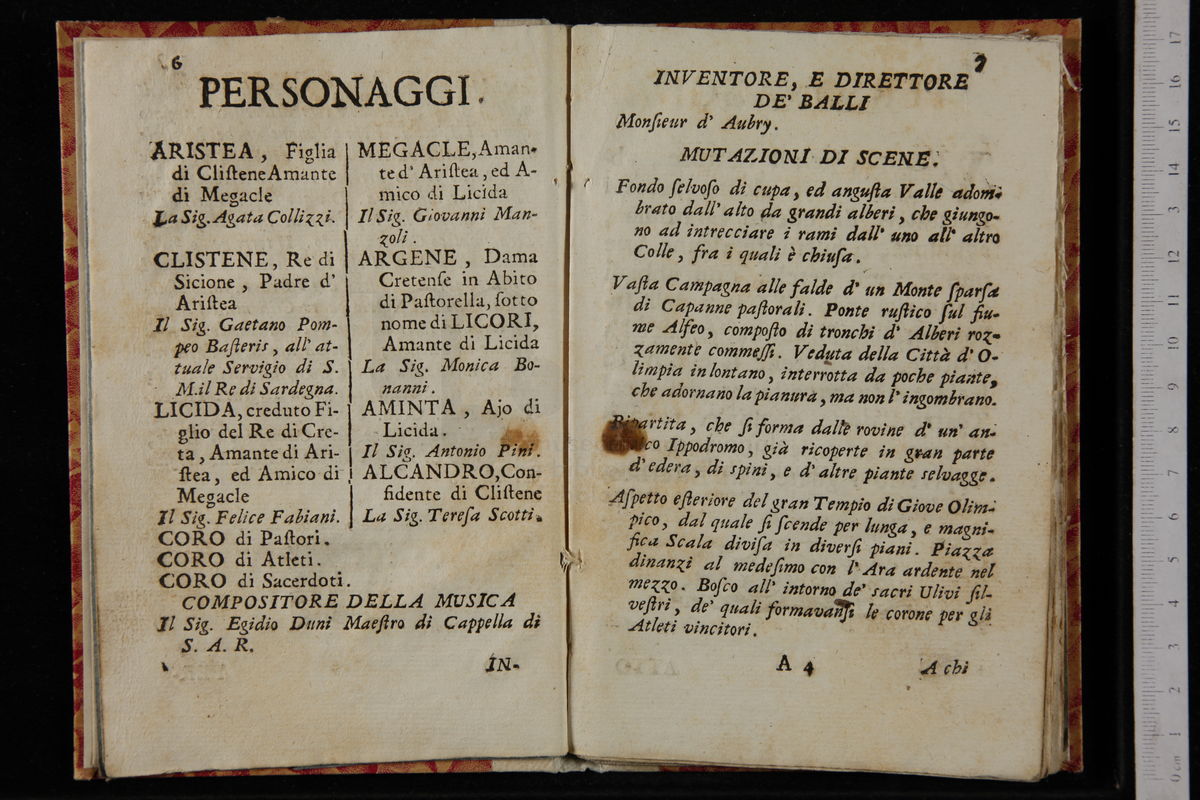 6
PERSONAGGI.
ARISTEA, Figlia
di Cliſtene Amante
di Megacle
La Sig. Agata Collizzi.
CLISTENE, Re di
Sicione, Padre d'
Ariſtea
Il Sig. Gaetano Pom-
peo Baſteris, all' at-
tuale Servigio di S.
M. il Re di Sardegna.
LICIDA, creduto Fi-
glio del Re di Cre-
ta, Amante di Ari-
ſtea, ed Amico di
Megacle
Il Sig. Felice Fabiani.
MEGACLE, Aman-
te d' Ariſtea, ed A-
mico di Licida
Il Sig. Giovanni Man-
zoli.
ARGENE, Dama
Cretenſe in Abito
di Paſtorella, ſotto
nome di LICORI,
Amante di Licida
La Sig. Monica Bo-
nanni.
AMINTA, Ajo di
Licida.
Il Sig. Antonio Pini.
ALCANDRO, Con-
fidente di Cliſtene
La Sig. Tereſa Scotti.
CORO di Paſtori.
CORO di Atleti.
CORO di Sacerdoti.
COMPOSITORE DELLA MUSICA
Il Sig. Egidio Duni Maeſtro di Cappella di
S. A. R.
IN-
7
INVENTORE, E DIRETTORE
DE' BALLI
Monſieur d' Aubry.
MUTAZIONI DI SCENE.
Fondo ſelvoſo di cupa, ed anguſta Valle adom-
brato dall' alto da grandi alberi, che giungo-
no ad intrecciare i rami dall' uno all' altro
Colle, fra i quali è chiuſa.
Vaſta Campagna alle falde d' un Monte ſparſa
di Capanne paſtorali. Ponte ruſtico ſul fiu-
me Alfeo, compoſto di tronchi d' Alberi roz-
zamente commeſſi. Veduta della Città d' O-
limpia in lontano, interrotta da poche piante,
che adornano la pianura, ma non l' ingombrano.
Bipartita, che ſi forma dalle rovine d' un' an-
tico Ippodromo, già ricoperte in gran parte
d' edera, di spini, e d' altre piante selvagge.
Aſpetto eſteriore del gran Tempio di Giove Olim-
pico, dal quale ſi ſcende per lunga, e magni-
fica Scala diviſa in diverſi piani. Piazza
dinanzi al medeſimo con l' Ara ardente nel
mezzo. Boſco all' intorno de' sacri Ulivi ſil-
veſtri, de' quali formavanſi le corone per gli
Atleti vincitori.
A 4
A chi
0 cm 1 2 3 4 5 6 7 8 9 10 11 12 13 14 15 16 17